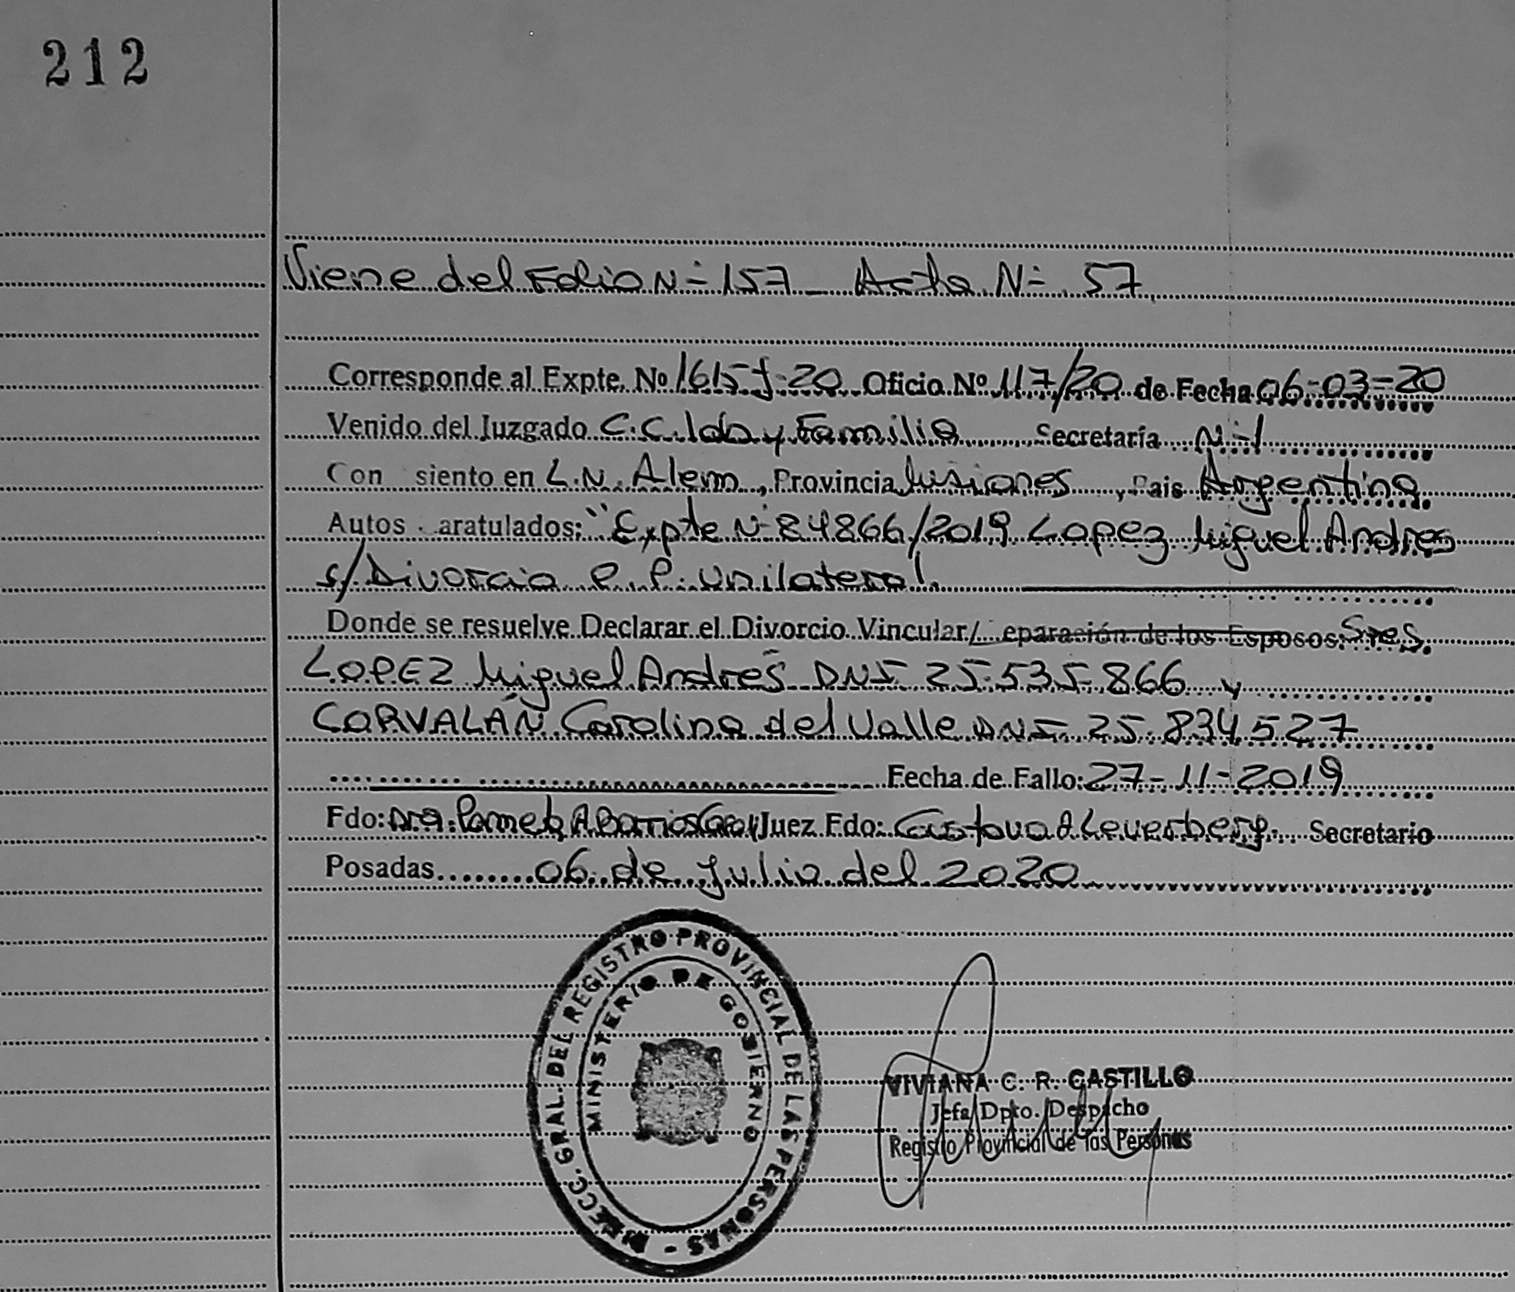 212
Viene del Folio Nº 157 - Acta Nº 57
Corresponde al Expte. Nº 1615-J-20 Oficio Nº 117/20 de Fecha 06-03-20
Venido del Juzgado C.C. Lab y Familia Secretaría Nº 1
Con siento en L.N. Alem, Provincia Misiones, Pais Argentina
Autos aratulados: "Expte Nº 84866/2019 Lopez Miguel Andres
s/Divorcio P. P. Unilateral.
Donde se resuelve Declarar el Divorcio Vincular/ eparación de los Esposos: Sres.
LOPEZ Miguel Andrés DNI 25.535.866 y
CORVALÁN Carolina del Valle DNI 25.834.527
Fecha de Fallo: 27-11-2019
Fdo: Dra. Pamela A. Barrios Juez Fdo: Gustavo A Leverberg. Secretario
Posadas 06 de Julio del 2020
DIRECC. GRAL. DEL REGISTRO PROVINCIAL DE LAS PERSONAS -
MINISTERIO DE GOBIERNO
VIVIANA C. R. CASTILLO
Jefa Dpto. Despacho
Registro Provincial de las Personas